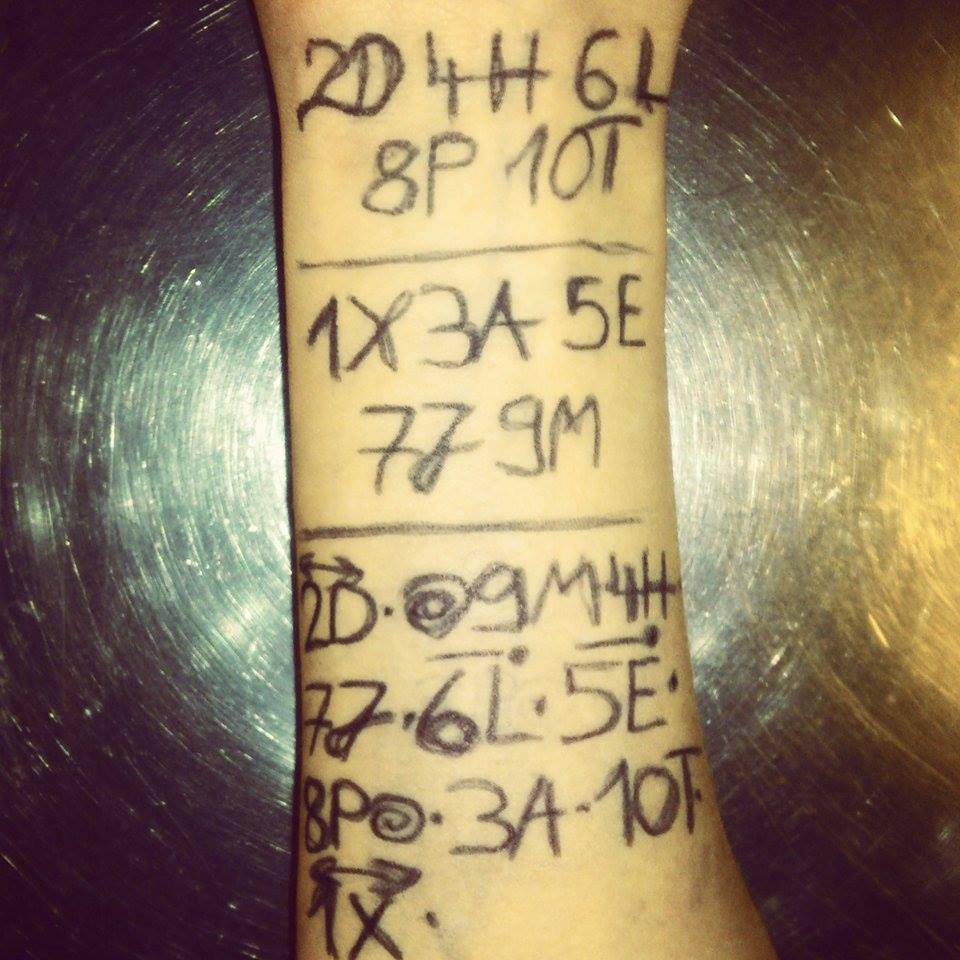 2D 4H 6L
8P 10T
1X 3A 5E
7J 9M
2D · 9M 4H
7J · 6L · 5E ·
8P · 3A · 10T ·
1X ·